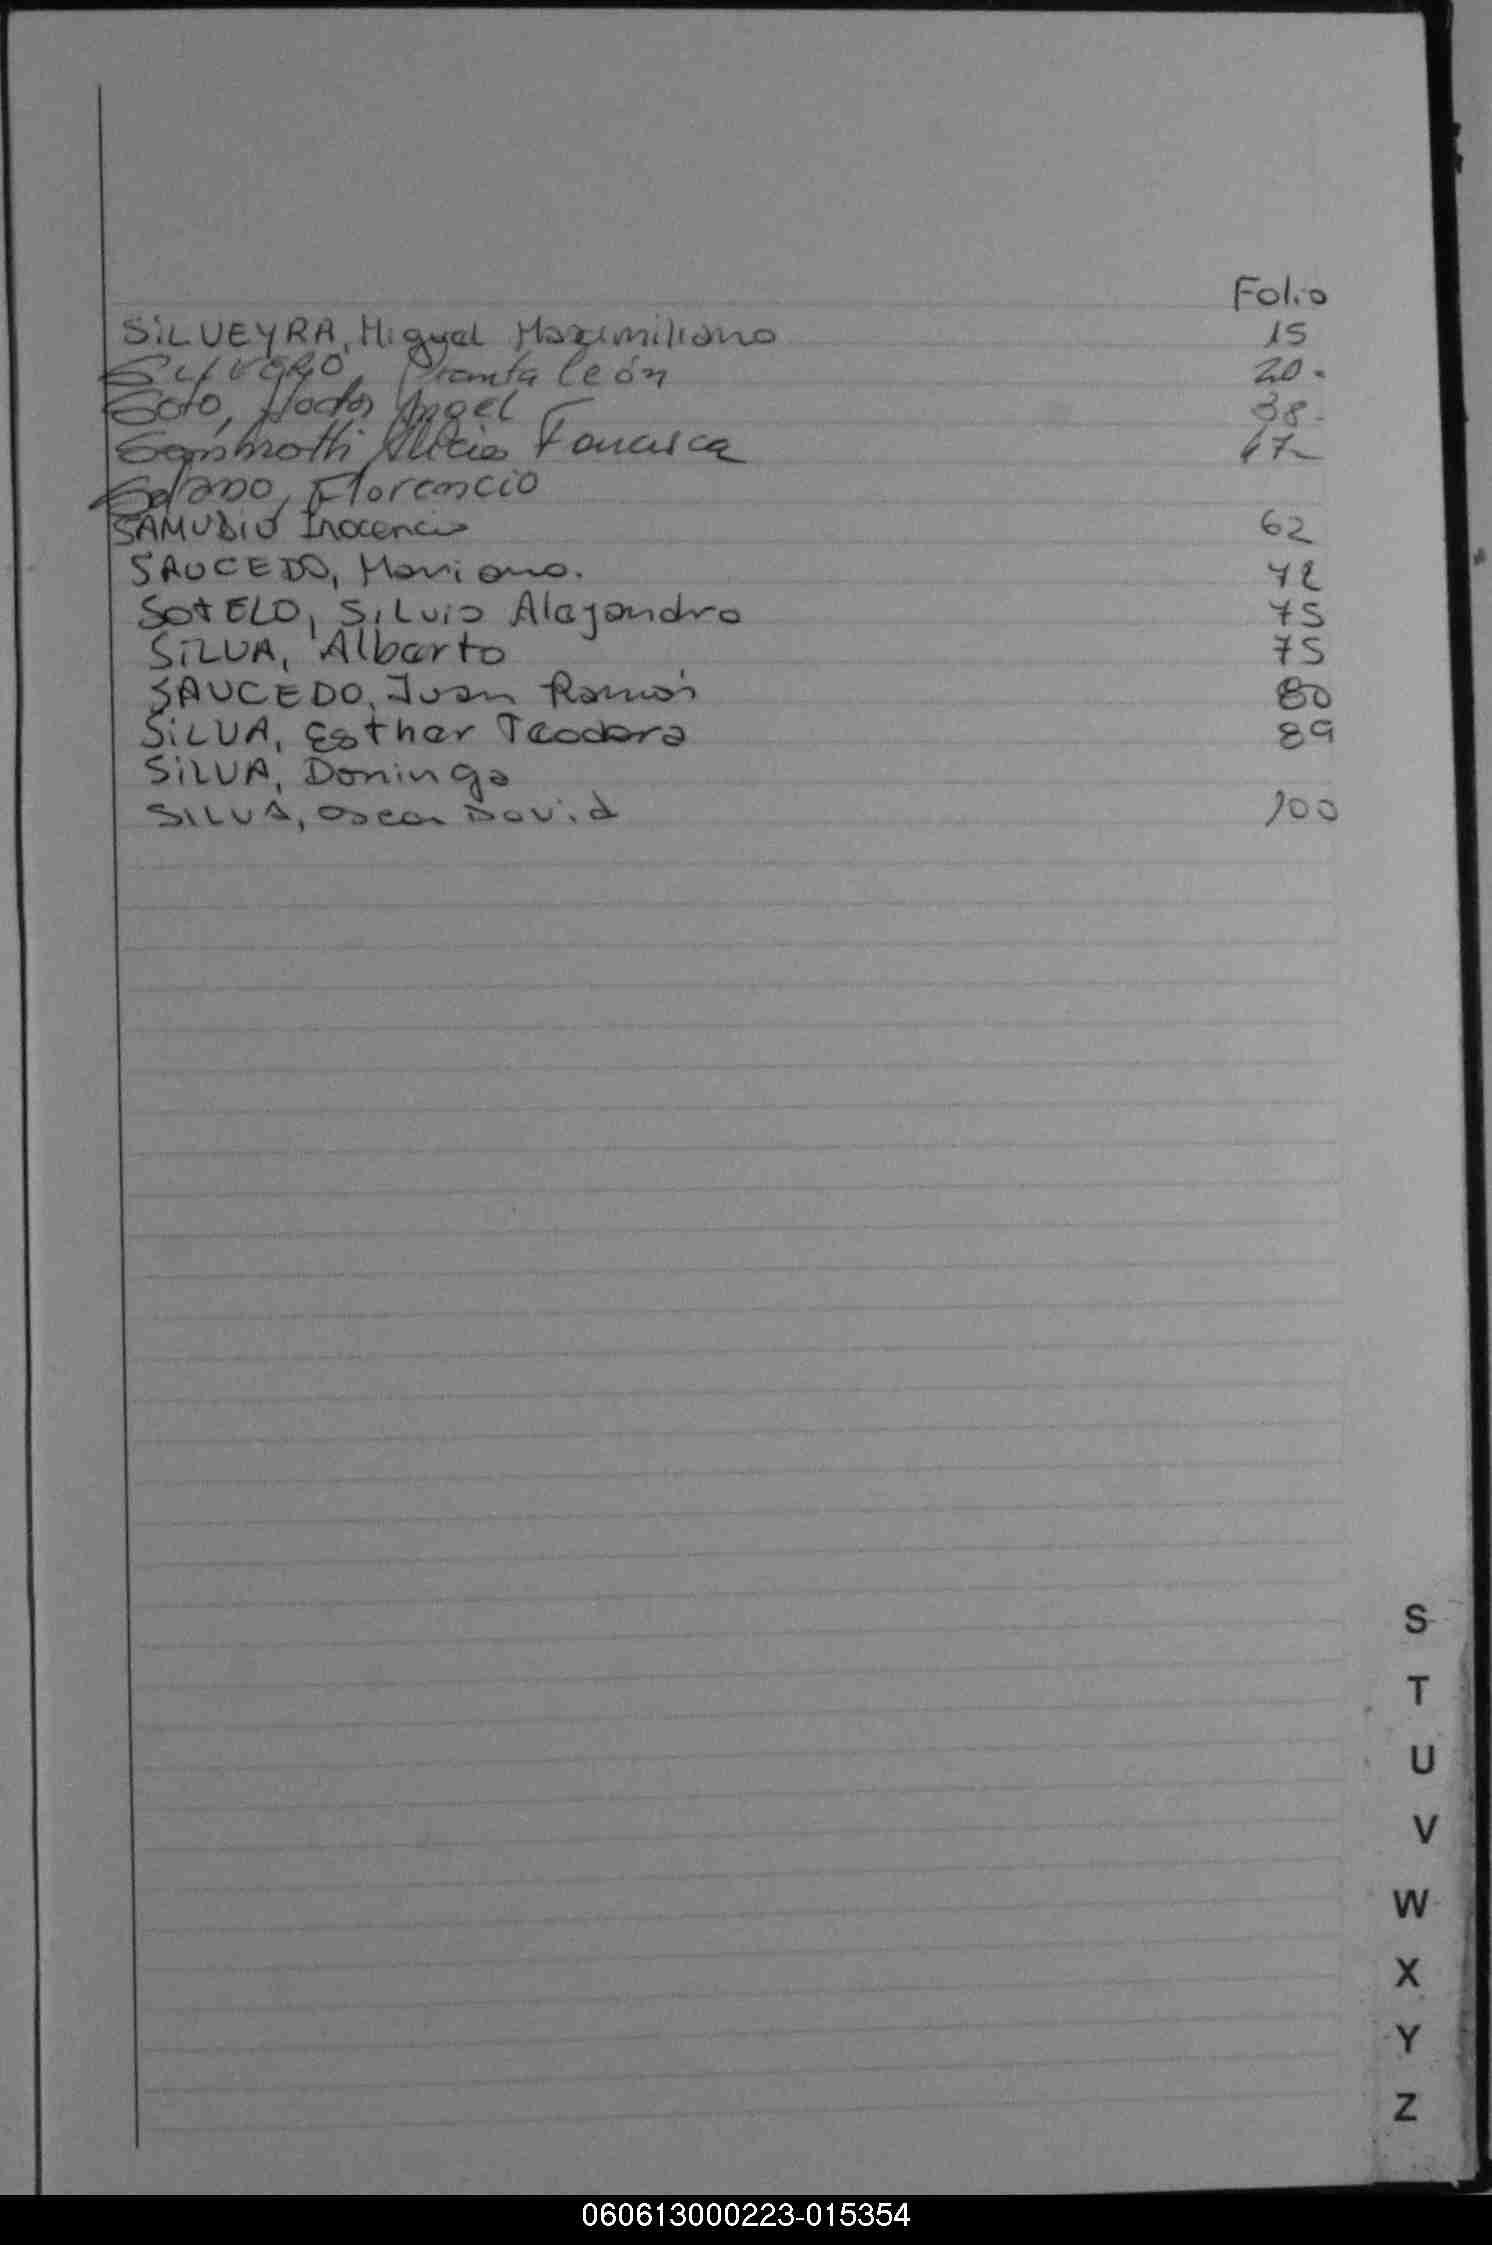 Folio
SiLUEYRA, Miguel Maximiliano 15
Pantaleón 20.
Soto, Angel 38.
Alicia 47
Solano, Florencio
SAMUDIO Inocencio 62
SAUCEDO, Mariano. 72
SotELO, SiLvio Alejandro 75
SiLUA, Alberto 75
SAUCEDO, Juan Ramón 80
SiLUA, Esther Teodora 89
SiLUA, Domingo
SILUA, Oscar David 100
S
T
U
V
W
X
Y
Z
060613000223-015354